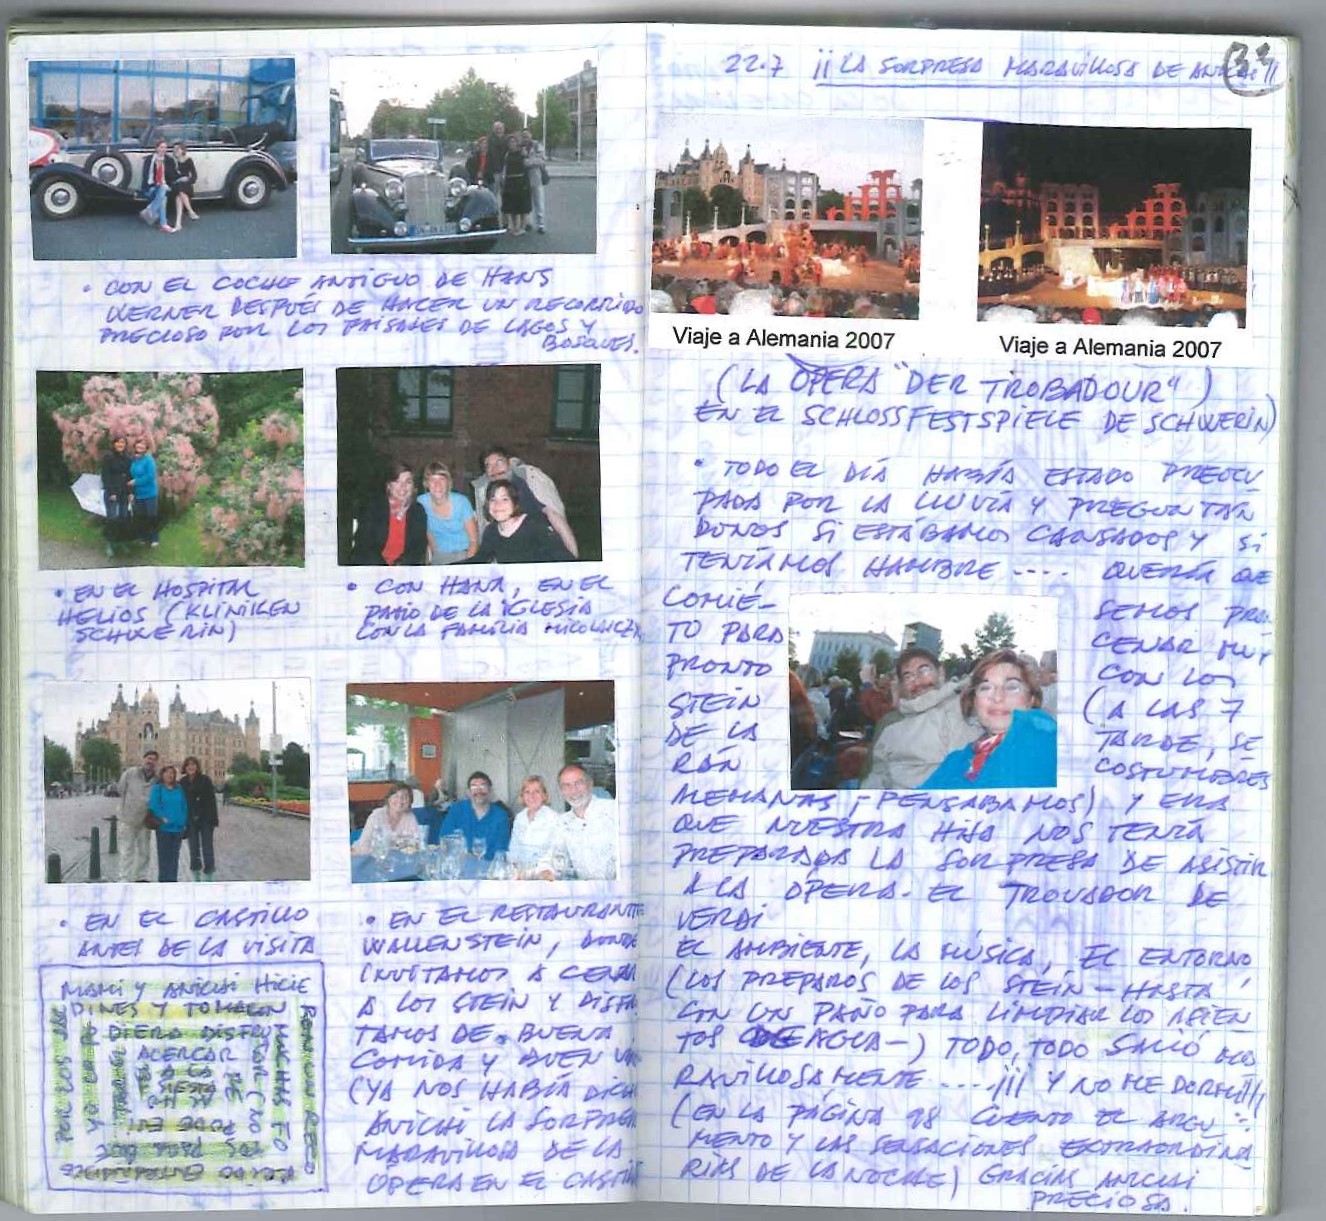 · CON EL COCHE ANTIGUO DE HANS
WERNER DESPUÉS DE HACER UN RECORRIDO
PRECIOSO POR LOS PAISAJES DE LAGOS Y
BOSQUES.
· EN EL HOSPITAL
HELIOS (KLINIKEN
SCHWERIN)
· CON HANA, EN EL
PATIO DE LA IGLESIA
CON LA FAMILIA
· EN EL CASTILLO
ANTES DE LA VISITA
MAMI Y ANICHI HICIE
· EN EL RESTAURANTE
WALLENSTEIN, DONDE
INVITAMOS A CENAR
A LOS STEIN Y DISFRU
TAMOS DE BUENA
COMIDA Y BUEN
(YA NOS HABÍA DICHO
ANICHI LA SORPRESA
MARAVILLOSA DE LA
ÓPERA EN EL CASTILLO
22.7 ¡¡ LA SORPRESA MARAVILLOSA DE ANICHI !!
33
Viaje a Alemania 2007
Viaje a Alemania 2007
(LA ÓPERA "DER TROBADOUR")
EN EL SCHLOSSFESTSPIELE DE SCHWERIN)
· TODO EL DÍA HABÍA ESTADO PREOCU
PADA POR LA LLUVIA Y PREGUNTÁN
DONOS SI ESTÁBAMOS CANSADOS Y SI
TENÍAMOS HAMBRE .... QUERÍA QUE
COMIÉ- SEMOS PRON
TO PARA CENAR MUY
PRONTO CON LOS
STEIN (A LAS 7
DE LA TARDE, SE
RÁN COSTUMBRES
ALEMANAS - PENSÁBAMOS) Y ERA
QUE NUESTRA HIJA NOS TENÍA
PREPARADA LA SORPRESA DE ASISTIR
A LA ÓPERA. EL TROVADOR DE
VERDI
EL AMBIENTE, LA MÚSICA, EL ENTORNO
(LOS PREPAROS DE LOS STEIN - HASTA
CON UN PAÑO PARA LIMPIAR LOS ASIEN
TOS DE AGUA -) TODO, TODO SALIÓ MA
RAVILLOSAMENTE .....!!! Y NO ME DORMÍ!!!
(EN LA PÁGINA 98 CUENTO EL ARGU
MENTO Y LAS SENSACIONES EXTRAORDINA
RIAS DE LA NOCHE) GRACIAS ANICHI
PRECIOSA.